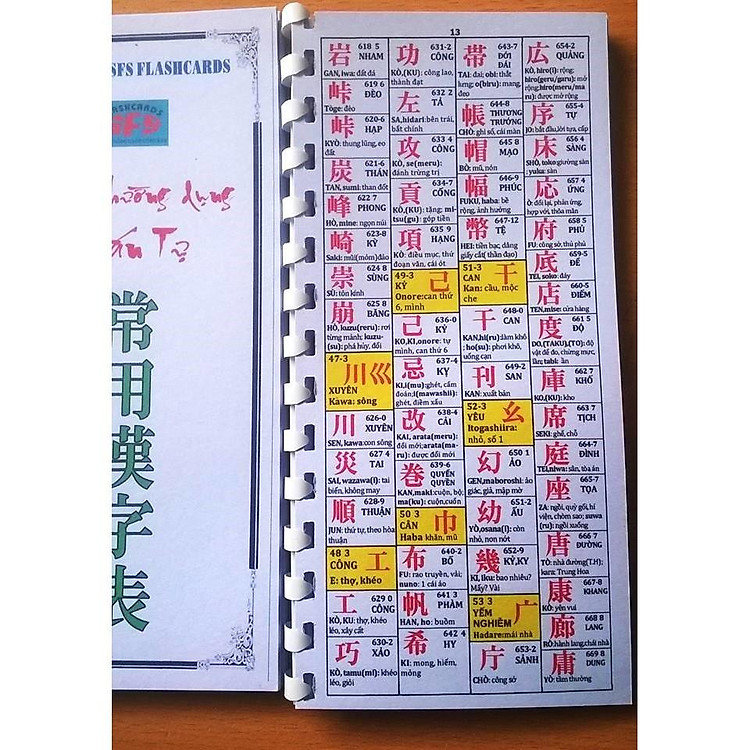 SFS FLASHCARDS
常用漢字表
13
岩 618 5
NHAM
GAN, iwa: đất đá
峠 619 6
ĐÈO
Tōge: đèo
峠 620-6
HẠP
KYŌ: thung lũng, eo
đất
炭 621-6
THÁN
TAN, sumi: than đốt
峰 622 7
PHONG
HŌ, mine: ngọn núi
崎 623-8
KỲ
Saki: mũi(mỏm)đảo
崇 624 8
SÙNG
SŪ: tôn kính
崩 625 8
BĂNG
HŌ, kuzu(reru): rơi
từng mảnh; kuzu-
(su): phá hủy, đổi
47-3
川巛
XUYÊN
Kawa: sông
川 626-0
XUYÊN
SEN, kawa:con sông
災 627 4
TAI
SAI, wazawa(i): tai
biến, không may
順 628-9
THUẬN
JUN: thứ tự, theo hòa
thuận
48 3
CÔNG
工
E: thợ, khéo
工 629 0
CÔNG
KŌ, KU: thợ, khéo
léo, xây cất
巧 630-2
XẢO
KŌ, tamu(mi): khéo
léo, giỏi
功 631-2
CÔNG
KŌ,(KU): công lao,
thành đạt
左 632 2
TẢ
SA,hidari:bên trái,
bất chính
攻 633 4
CÔNG
KŌ, se(meru):
đánh trừng trị
貢 634-7
CỐNG
KŌ,(KU): tăng; mi-
tsu(gu): góp tiền
項 635 9
HẠNG
KŌ: điều mục, thứ
đoạn văn, cái ót
49-3
KỶ
己
Onore:can thứ
6, mình
己 636-0
KỶ
KO,KI,onore: tự
mình, can thứ 6
忌 637-4
KỴ
KI,i(mu):ghét, cấm
đoán;i(mawashii):
ghét, điềm xấu
改 638-4
CẢI
KAI, arata(meru):
đổi mới;arata(ma-
ru): được đổi mới
巻 639-6
QUYỂN
QUYỀN
KAN,maki:cuộn, bộ;
ma(ku): cuộn,cuốn
50 3
CÂN
巾
Haba khăn, mũ
布 640-2
BỐ
FU: rao truyền, vải;
nuno: 1 cái áo
帆 641 3
PHÀM
HAN, ho: buồm
希 642 4
HY
KI: mong, hiếm,
mỏng
帯 643-7
ĐỚI
ĐÁI
TAI: đai; obi: thắt
lưng; o(biru): mang,
đeo
帳 644-8
THƯƠNG
TRƯỚNG
CHŌ: ghi sổ, cái màn
帽 645 8
MẠO
BŌ: mũ, nón
幅 646-9
PHÚC
FUKU, haba: bề
rộng, ảnh hưởng
幣 647-12
TỆ
HEI: tiền bạc, dâng
giấy cắt(thần đạo)
51-3
CAN
干
Kan: cầu, mộc
che
干 648-0
CAN
KAN,hi(ru):làm khô
; ho(su): phơi khô,
uống cạn
刊 649-2
SAN
KAN: xuất bản
52-3
YÊU
幺
Itogashiira:
nhỏ, số 1
幻 650 1
ẢO
GEN,maboroshi: ảo
giác, giả, mập mờ
幼 651-2
ẤU
YŌ,osana(i): còn
nhỏ, non nớt
幾 652-9
KỶ,KY
KI, iku: bao nhiêu?
Mấy? Vài
53 3
YỂM
NGHIỄM
广
Hadare:mái nhà
庁 653-2
SẢNH
CHŌ: công sở
広 654-2
QUẢNG
KŌ, hiro(i): rộng;
hiro(geru/garu): mở
rộng;hiro(meru/ma
ru): được mở rộng
序 655-4
TỰ
JO: bắt đầu,lời tựa, cấp
床 656 4
SÀNG
SHŌ, toko:giường sàn
; yuka: sàn nhà
応 657 4
ỨNG
Ō: đối lại, phản ứng,
hợp với, thỏa mãn
府 658 5
PHỦ
FU: công sở, thủ phủ
底 659-5
ĐỂ
TEI, soko: đáy
店 660-5
ĐIẾM
TEN,mise: cửa hàng
度 661 5
ĐỘ
DO,(TAKU),(TO): độ
vật để đo, chừng mực,
lần; tabi: ần
庫 662 7
KHỐ
KO,(KU): kho
席 663 7
TỊCH
SEKI: ghế, chỗ
庭 664-7
ĐÌNH
TEI,niwa: sân, tòa án
座 665-7
TỌA
ZA: ngồi, quỳ gối, hí
viện, chòm sao; suwa
(ru): ngồi xuống
唐 666 7
ĐƯỜNG
TŌ: nhà đường(T.H);
kara: Trung Hoa
康 667-8
KHANG
KŌ: yên vui
廊 668 8
LANG
RŌ: hành lang,chái nhà
庸 669 8
DUNG
YŌ: tầm thường